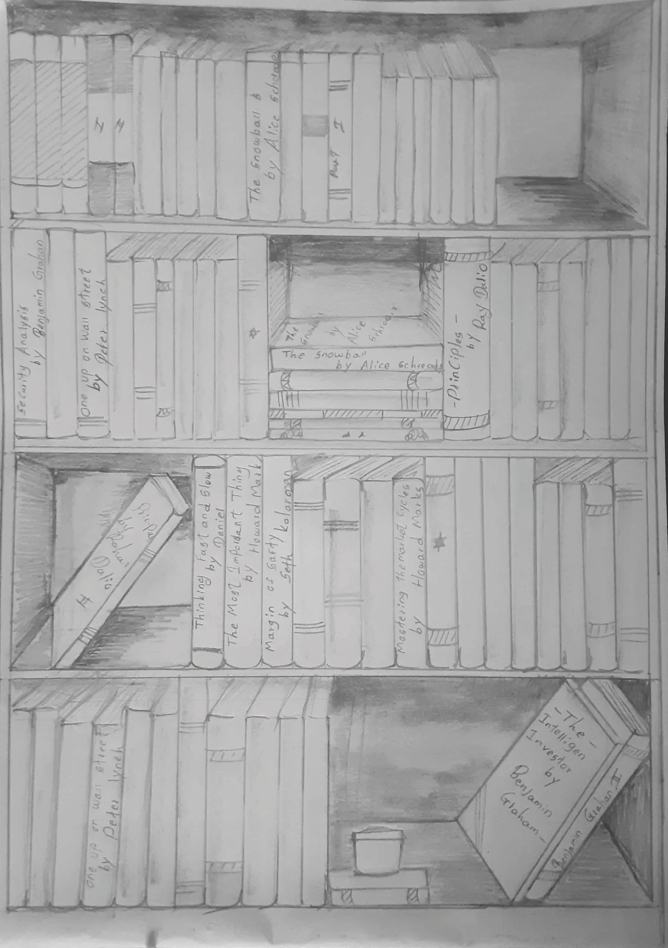 The Snowball
by Alice Schroed
Part I
Security Analysis
by Benjamin Graham
one up on wall street
by Peter lynch
The Snowball
by Alice Schroed
The Snowball
by Alice Schroed
-PrinCiples-
by Ray Dalio
Thinking Fast and Slow
by Daniel
The Most Impordant Thing
by Howard Mark
Margin of Safty
by Seth
Mastering the market Cycles
by Howard Marks
one up on wall street
by Peter lynch
-The-
Intelligen
Investor
by
Benjamin
Graham-
Benjamin Graham II